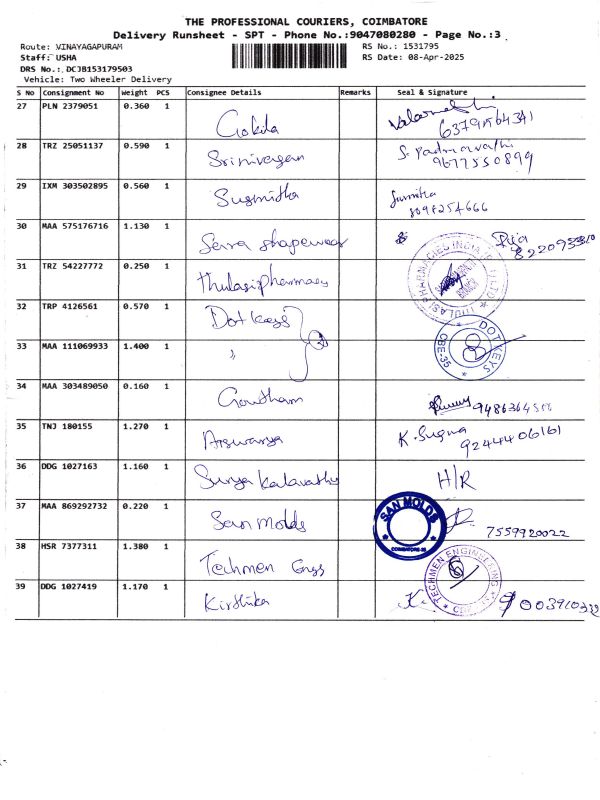 THE PROFESSIONAL COURIERS, COIMBATORE
Delivery Runsheet - SPT - Phone No.:9047080280 - Page No.:3
Route: VINAYAGAPURAM RS No.: 1531795
Staff: USHA RS Date: 08-Apr-2025
DRS No.: DCJB153179503
Vehicle: Two Wheeler Delivery
S No Consignment No Weight PCS Consignee Details Remarks Seal & Signature
27 PLN 2379051 0.360 1 Gokila
28 TRZ 25051137 0.590 1 Srinivasan S. Padmavathi
9677550899
29 IXM 303502895 0.560 1 Susmitha Susmitha
8098254666
30 MAA 575176716 1.130 1 Serra shapewear
31 TRZ 54227772 0.250 1 Thulasi pharmacy THULASI PHARMACIES INDIA
32 TRP 4126561 0.570 1 Dot keys DOT KEYS CBE-35
33 MAA 111069933 1.400 1 "
34 MAA 303489050 0.160 1 Goutham
35 TNJ 180155 1.270 1 Aiswarya K. Suguna
9244406161
36 DDG 1027163 1.160 1 Surya Kalavathy H/R
37 MAA 869292732 0.220 1 San Molds SAN MOLDS COIMBATORE-35 7559920022
38 HSR 7377311 1.380 1 Techmen Engg TECHMEN ENGINEERING
39 DDG 1027419 1.170 1 Kirthika K.